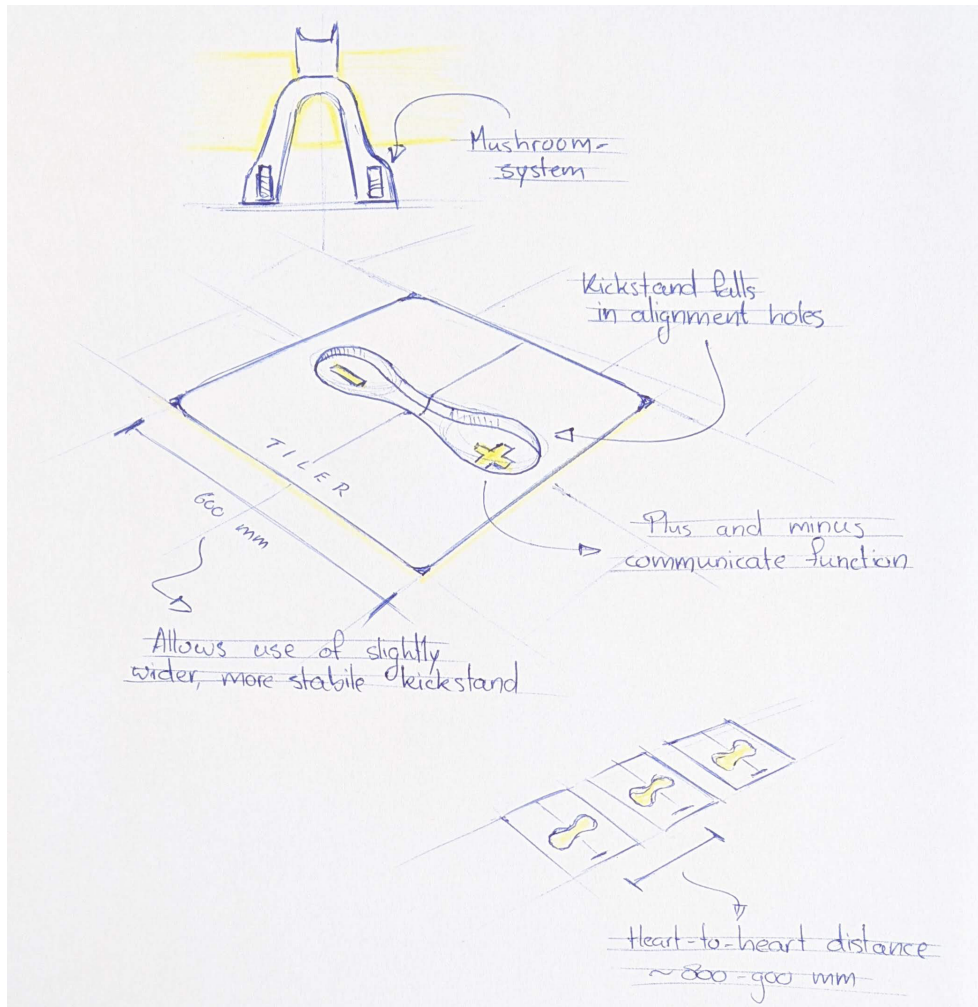 Mushroom-
system
Kickstand falls
in alignment holes
TILER
600 mm
Plus and minus
communicate function
Allows use of slightly
wider, more stabile kickstand
Heart-to-heart distance
~800-900 mm